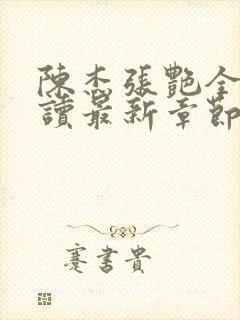 陳杰張艷全
讀最新章節
蹇書貴